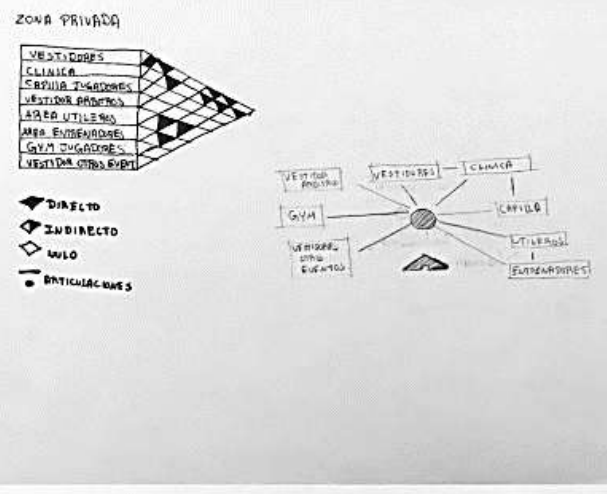 ZONA PRIVADA
VESTIDORES
CLINICA
CAPILLA JUGADORES
VESTIDOR ARBITROS
AREA UTILEROS
AREA ENTRENADORES
GYM JUGADORES
VESTIDOR OTROS EVENT
DIRECTO
INDIRECTO
NULO
ARTICULACIONES
VESTIDOR
ARBITRO
VESTIDORES
CLINICA
GYM
CAPILLA
VESTIDOR
OTROS
EVENTOS
UTILEROS
ENTRENADORES